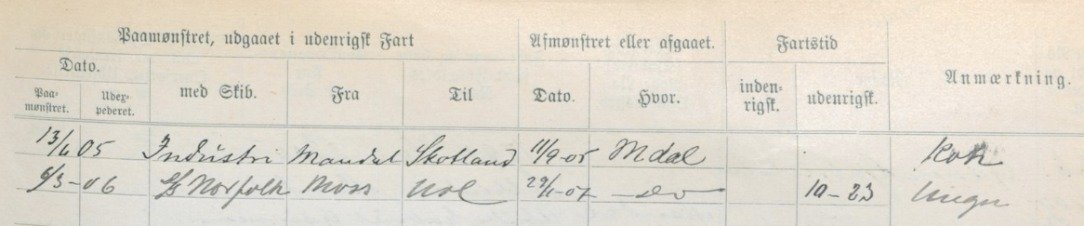 Paamønstret, udgaaet i udenrigsk Fart Afmønstret eller afgaaet. Fartstid
Dato. med Skib. Fra Til Dato. Hvor. inden-rigsk. udenrigsk. Anmærkning.
Paa-mønstret. Udex-pederet.
13/6 05 Industri Mandal Skotland 11/9-05 Mdal Kok
6/3-06 S/S Norfolk Moss 29/1-07 do 10-23